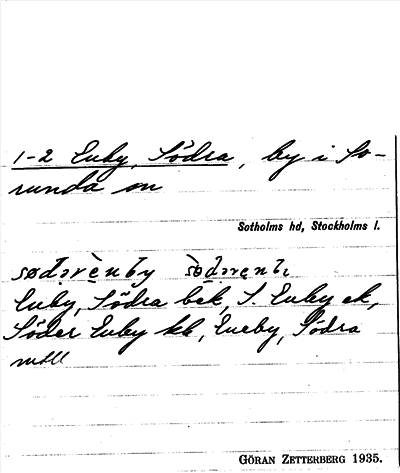 1-2 Enby, Södra, by i So-
runda sn
Sotholms hd, Stockholms l.
sødərènby sò̤dərenbı
Enby, Södra bek, S. Enby ek,
Söder Enby kb, Eneby, Södra
mtll
GÖRAN ZETTERBERG 1935.